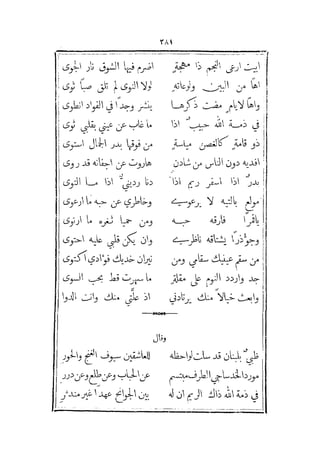 ٣٨١
ابيت ارعى النجم ذا مهجةٍ اضرم فيها الشوق نار الجوى
اهًا من البين ولوعاته لولا النوى لم تلق صبًا ثوى
واهًا لايامٍ مضت ذكرها ينشر وجدًا في الفواد انطوى
في ذمة الله حبيبٌ اذا ما غاب عن عيني بقلبي ثوى
ذو قامةٍ كالغصن مياسةٍ من فوقها بدر الجمال استوى
افديه دون الناس من شادنٍ هاروت عن اجفانه قد روى
بدرٌ اذا اسفر ريمٌ اذا دنا ردينيٌ اذا ما التوى
مولع بالتيه لا يرعوي وخاطري عن حبه ما ارعوى
يا قمرًا فارقه حبه ومن حميا ثغره ما ارتوى
وجوذرًا يشتاقه ناظري وان يكن قلبي عليه احتوى
من سقم عينيك سقامي ومن نيران خديك فوادي اكتوى
جد واردد النوم على مقلةٍ ما سهرت قط بحب السوى
وابعث خيالًا منك يرتادني اذ علَّتي منك وانت الدوا
وقال
ظبيٌ بلبنان قد سلت لواحظه للعاشقين سيوف الغنج والحور
مورد الخد ساجي الطرف مبتسم عن الحباب وعن طلع وعن درر
في ذمة الله ذاك الريم ان له بين الجوانح عهدًا غير مندثر